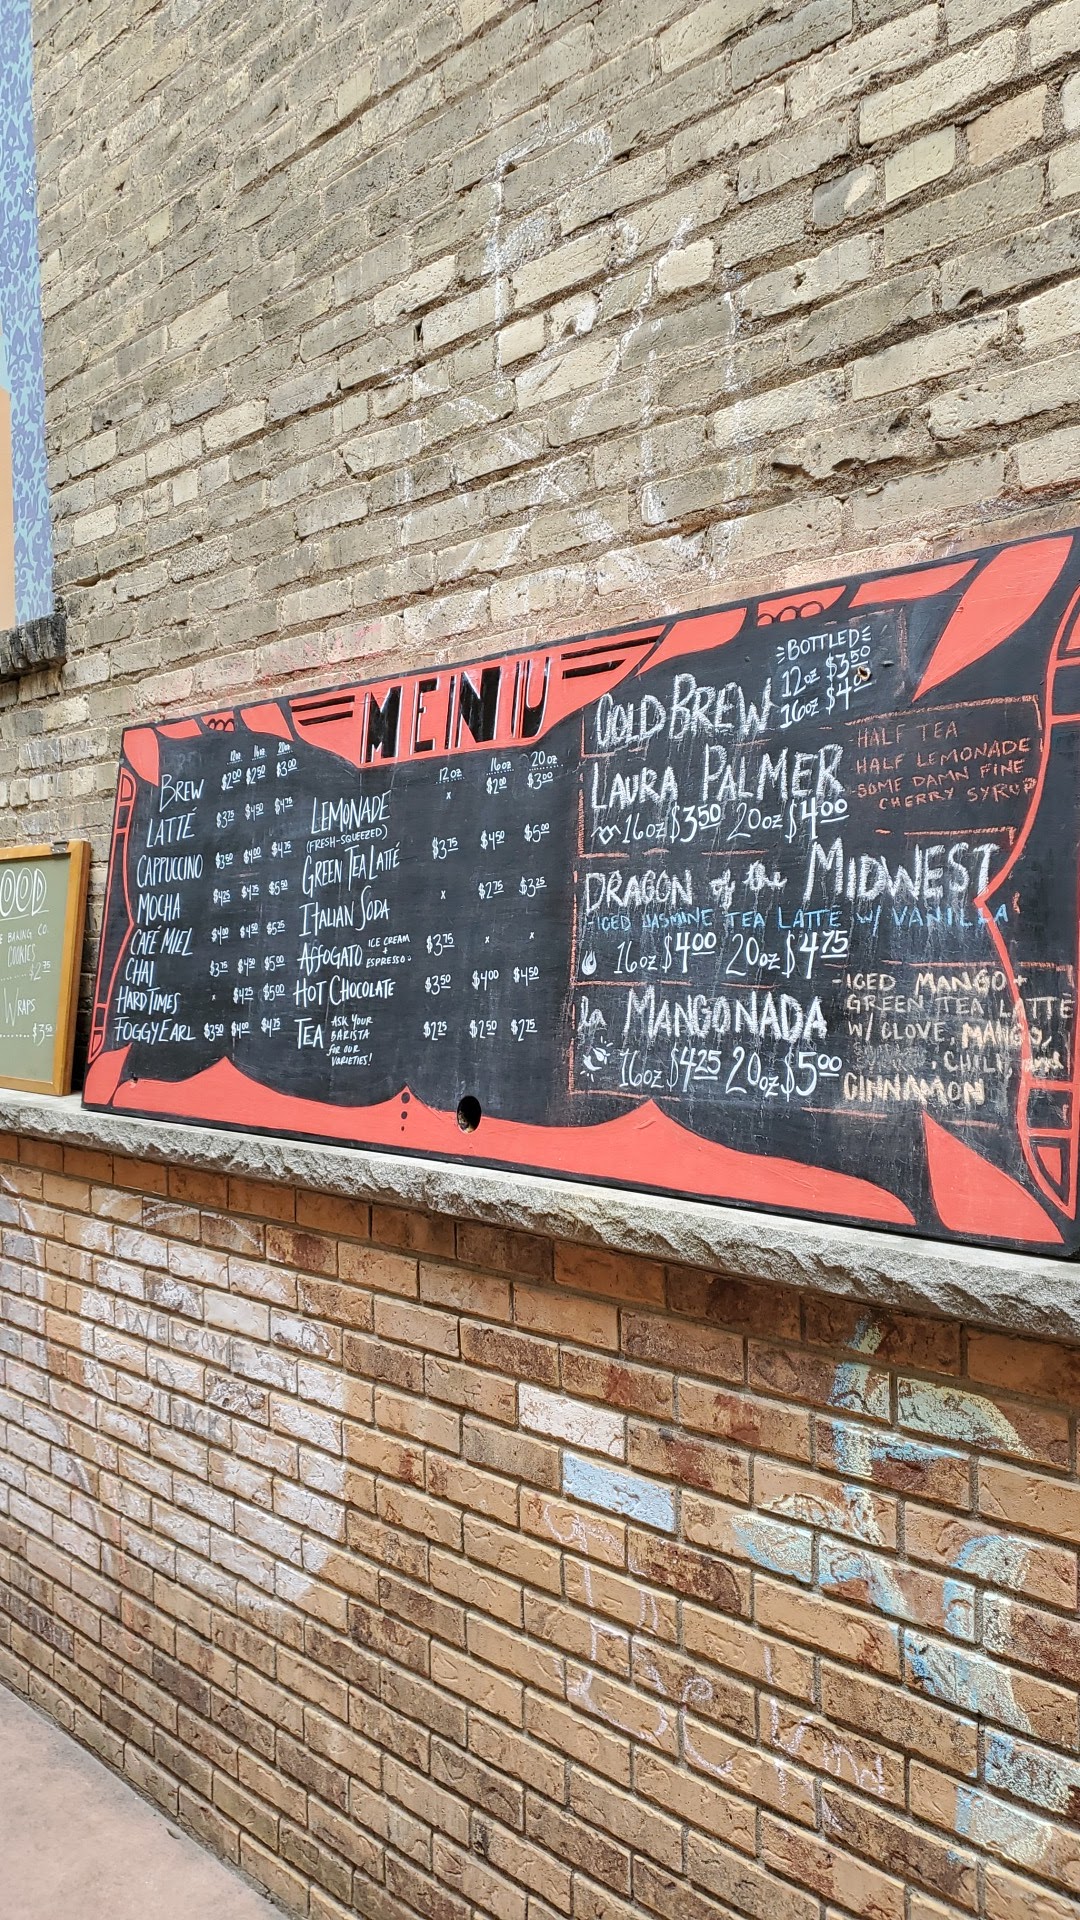 MENU
12oz 16oz 20oz
BREW $2.00 $2.50 $3.00
LATTE $3.75 $4.50 $4.75
CAPPUCCINO $3.50 $4.00 $4.75
MOCHA $4.25 $4.75 $5.50
CAFÉ MIEL $4.00 $4.50 $5.25
CHAI $3.75 $4.50 $5.00
HARD TIMES x $4.25 $5.00
FOGGY EARL $3.50 $4.00 $4.75
12oz 16oz 20oz
LEMONADE x $2.00 $3.00
(FRESH-SQUEEZED)
GREEN TEA LATTÉ $3.75 $4.50 $5.00
ITALIAN SODA x $2.75 $3.25
AFFOGATO ICE CREAM + ESPRESSO $3.75 x x
HOT CHOCOLATE $3.50 $4.00 $4.50
TEA $2.25 $2.50 $2.75
ASK YOUR
BARISTA
for OUR
VARIETIES!
COLD BREW
BOTTLED
12oz $3.50
16oz $4.00
LAURA PALMER
16oz $3.50 20oz $4.00
-HALF TEA
-HALF LEMONADE
-SOME DAMN FINE
CHERRY SYRUP
DRAGON of the MIDWEST
ICED JASMINE TEA LATTE W/ VANILLA
16oz $4.00 20oz $4.75
la MANGONADA
16oz $4.25 20oz $5.00
-ICED MANGO +
GREEN TEA LATTE
W/ CLOVE, MANGO,
, CHILI, and
CINNAMON
OOD
BAKING CO.
COOKIES
$2.75
WRAPS
$3.50
WELCOME
BACK